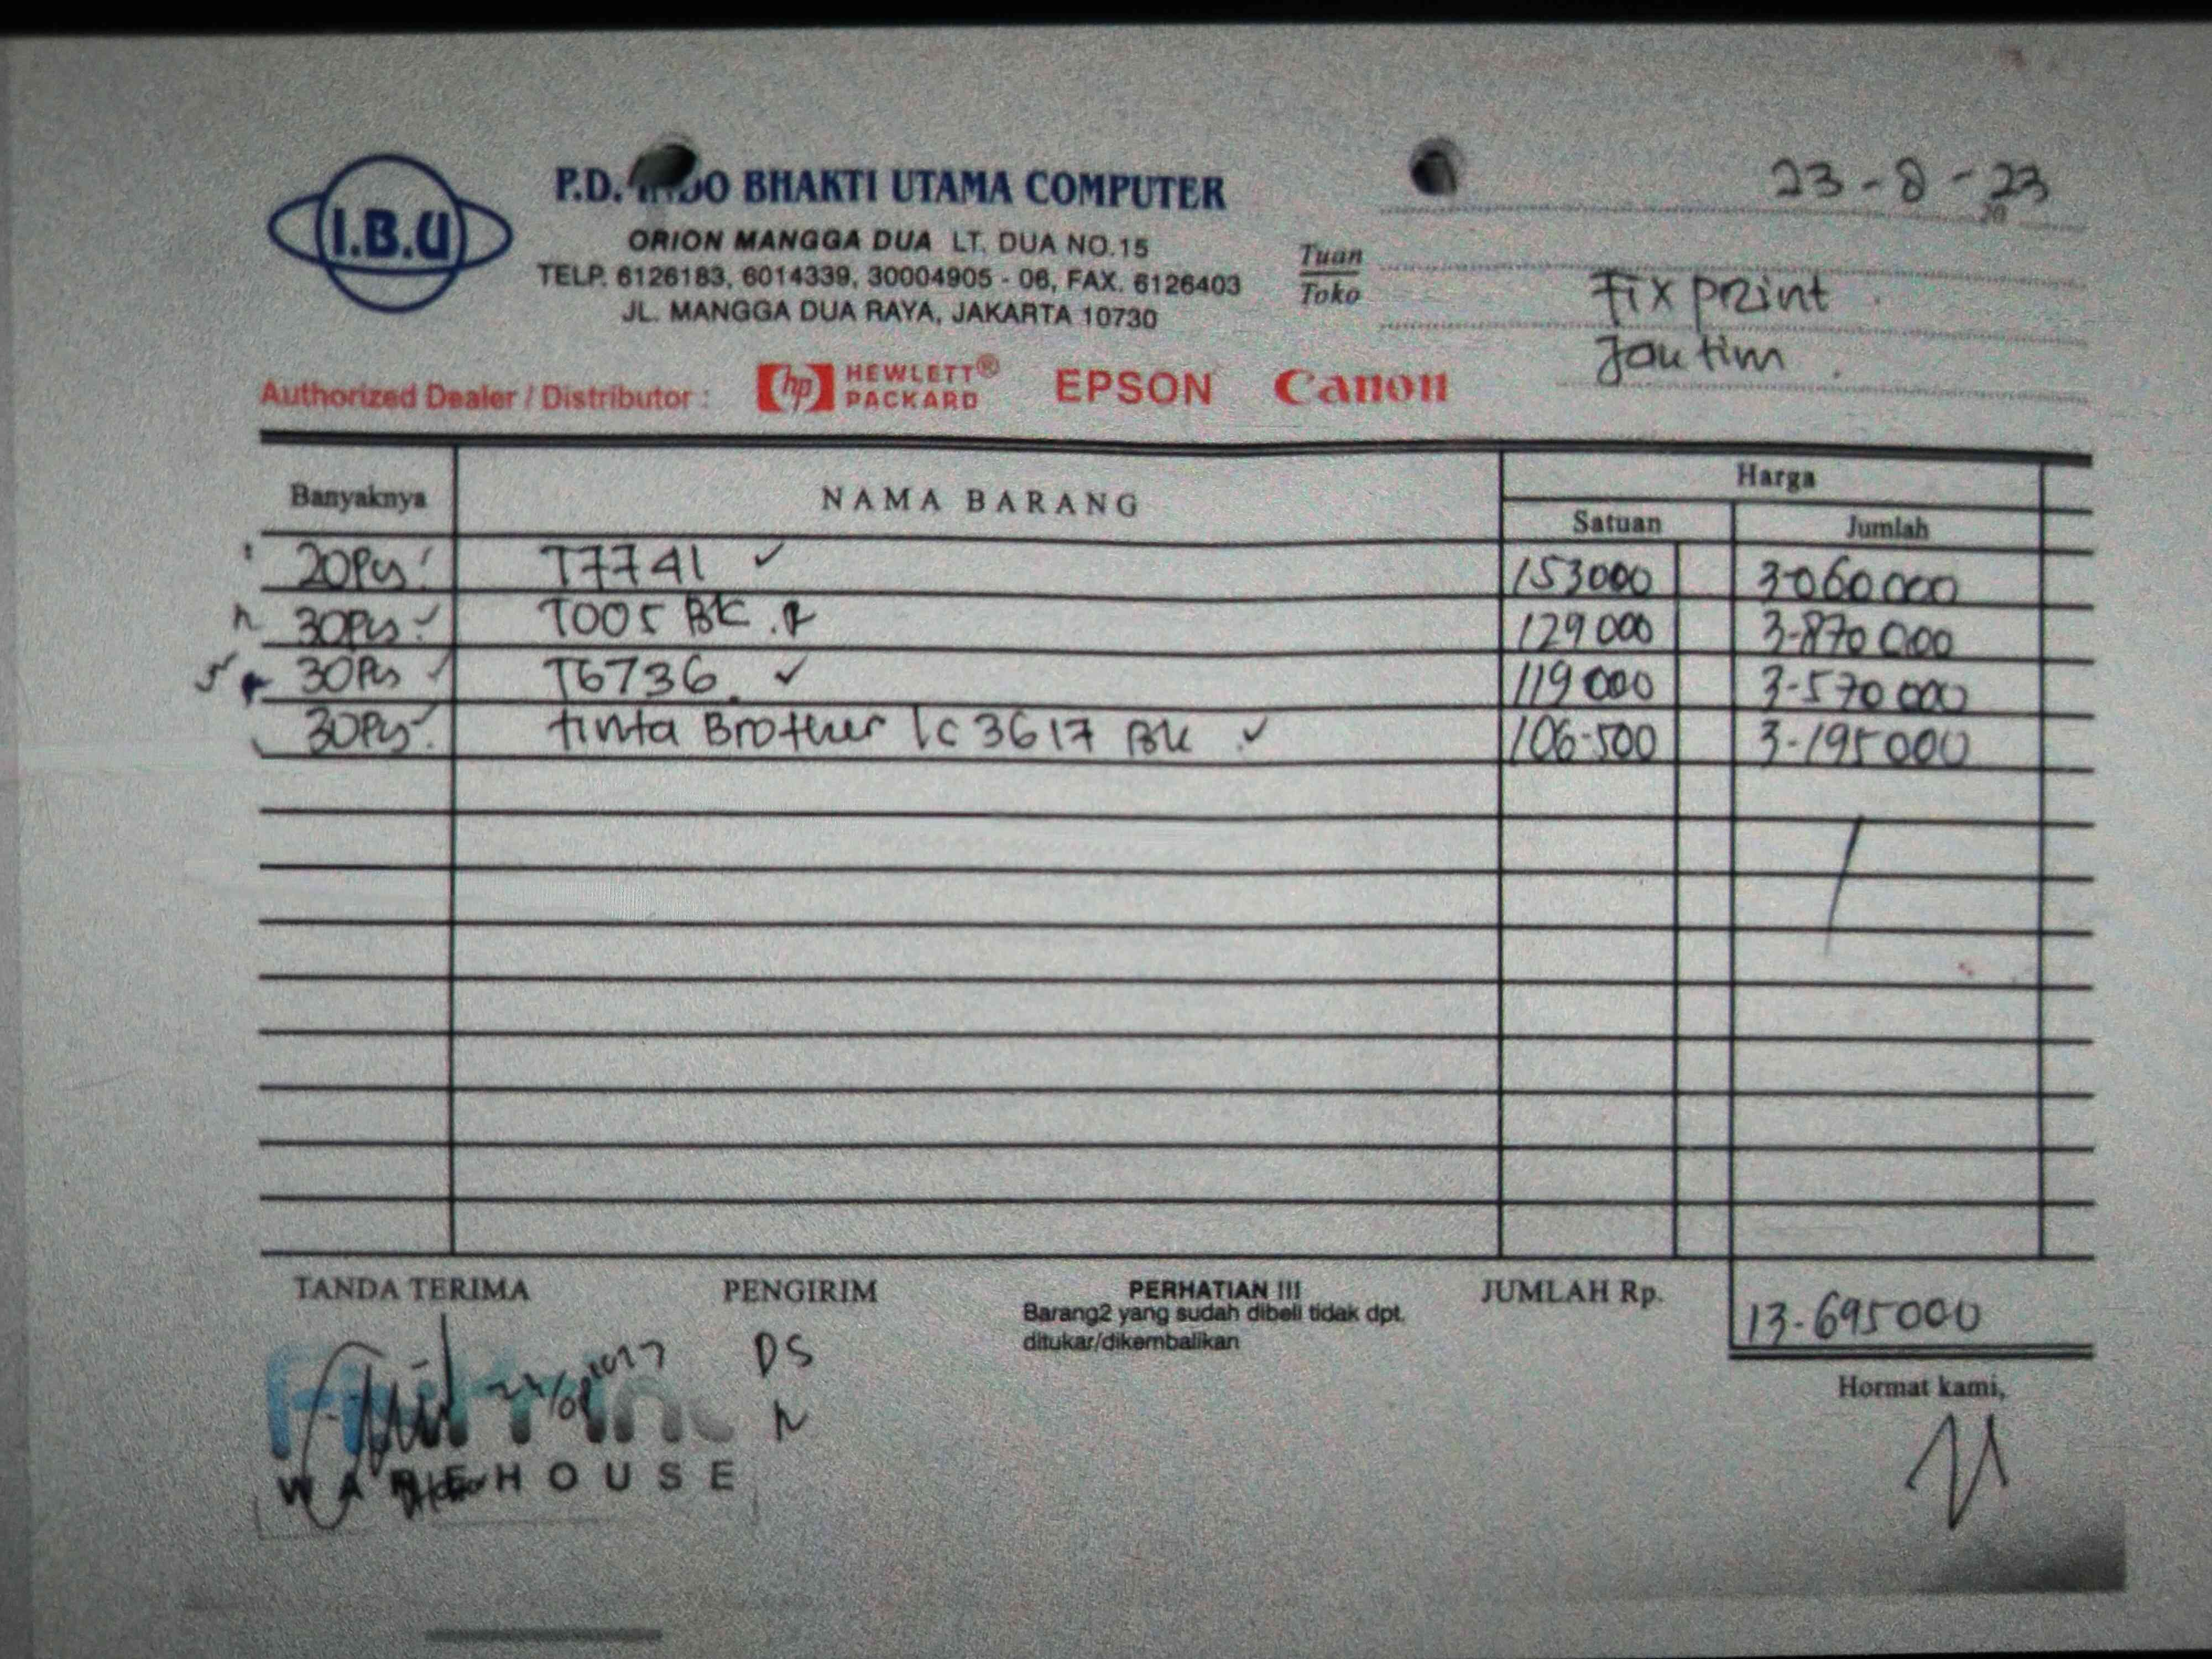 I.B.U
P.D. BHAKTI UTAMA COMPUTER
ORION MANGGA DUA LT. DUA NO.15
TELP. 6126183, 6014339, 30004905 - 06, FAX. 6126403
JL. MANGGA DUA RAYA, JAKARTA 10730
23-8-23
20
Tuan
Toko
Fixprint
Jaktim
Authorized Dealer / Distributor : hp HEWLETT® PACKARD EPSON Canon
Banyaknya NAMA BARANG Harga
Satuan Jumlah
20Pcs T7741 153000 3-060000
30Pcs T005 BK 129000 3-870000
30Pcs T6736 119000 3-570000
30Pcs tinta Brother lc 3617 BK 106-500 3-195000
TANDA TERIMA PENGIRIM PERHATIAN !!! JUMLAH Rp. 13-695000
Barang2 yang sudah dibeli tidak dpt.
ditukar/dikembalikan
DS
Hormat kami,
WAREHOUSE